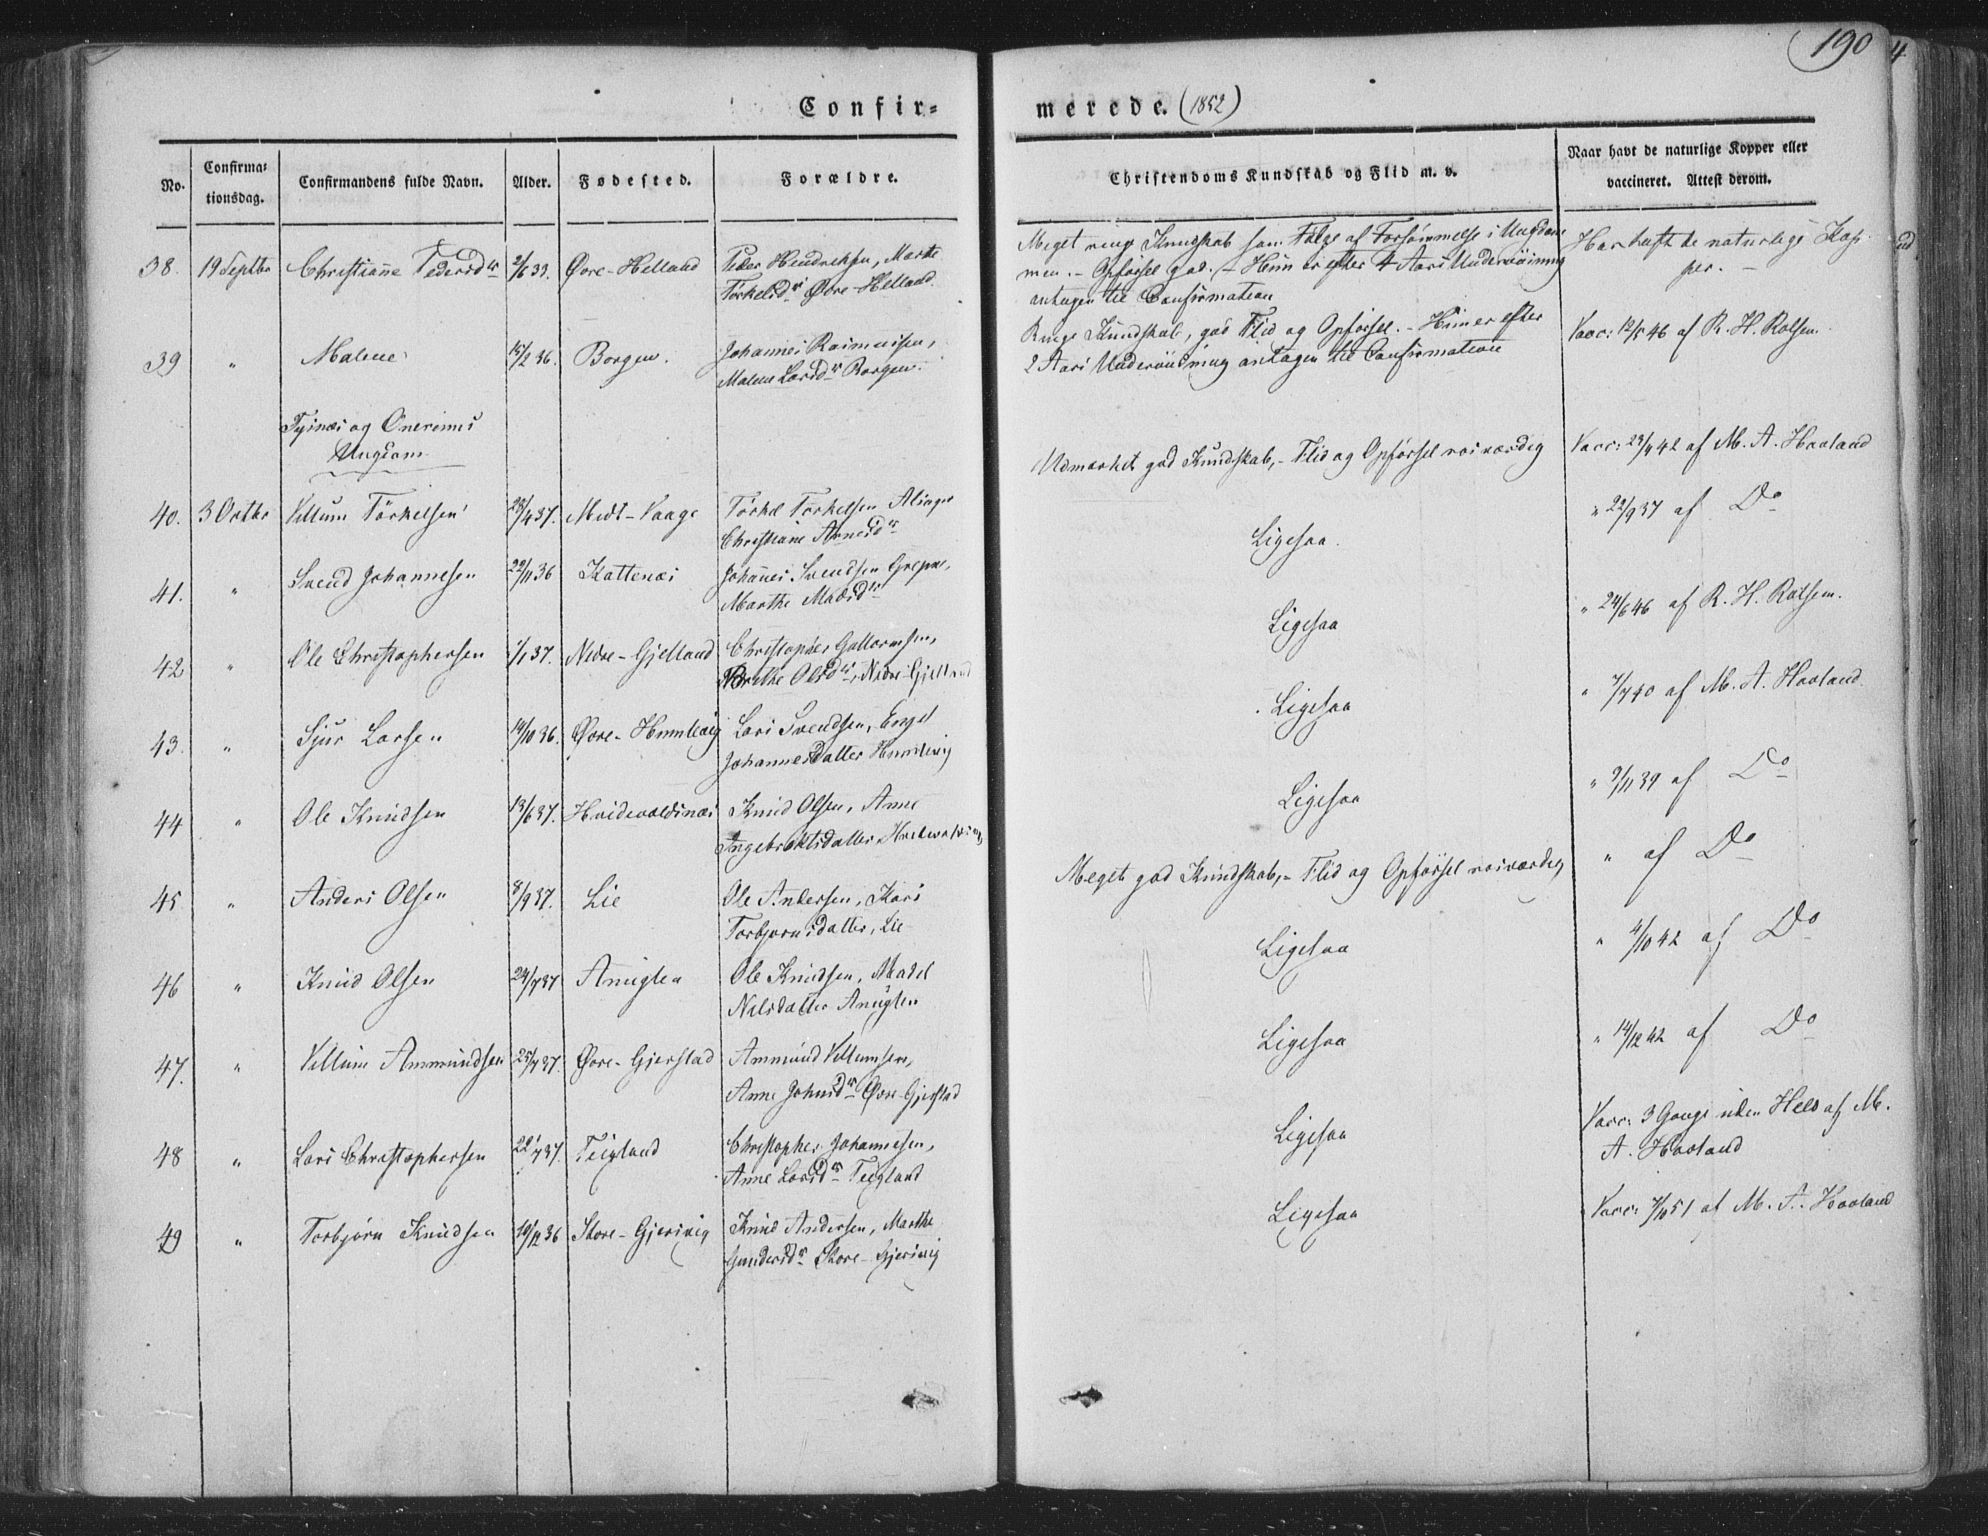 190
Confir=
merede. (1852)
No.
Confirma=
tionsdag.
Confirmandens fulde Navn.
Alder.
Fødested.
Forældre.
Christendoms Kundskab og Flid m. v.
Naar havt de naturlige Kopper eller
vaccineret. Attest derom.
38. 19 Septbr Christiane Pedersdr 2/6 33. Øvre-Helland Peder Hendriksen, Marthe
Torkelsdr Øvre-Helland.
Meget ringe Kundskab som Følge af Forsømmelse i Ungdom
men. - Opførsel god. - Hun er efter 4 Aars Underviisning
antagen til Confirmation
Har havt de naturlige Kop
per. -
39 " Malene 15/2 36. Borgen. Johannes Rasmussen,
Malene Larsdr Borgen.
Ringe Kundskab, god Flid og Opførsel. - Hun er efter
2 Aars Underviisning antagen til Confirmation
Vacc: 12/5 46 af R. H. Rolfsen.
Tysnæs og Onerimes
Ungdom
40. 3 Octbr Villum Törkelsen 23/4 37. Midt-Vaage Törkel Törkelsen
Christiane Arnesdr
Udmærket god Kundskab, - Flid og Opførsel roesværdig
Vacc: 23/9 42 af M. A. Haaland
41. " Svend Johannesen 22/11 36 Kattenæs Johannes Svendsen
Marthe Madsdr
Ligesaa.
" 22/9 37 af Do
42 " Ole Christophersen 1/1 37. Nedre-Gjelland Christopher Guttormsen,
Marthe Olsdr, Nedre-Gjelland
Ligesaa
" 24/6 46 af R. H. Rolfsen.
43. " Sjur Larsen 14/10 36. Øvre-Humlevig Lars Svendsen, Engel
Johannesdatter Humlevig
Ligesaa
" 7/7 40 af M. A. Haaland.
44 " Ole Knudsen 13/6 37. Hvidevoldsnæs Knud Olsen, Anne
Ingebrektsdatter
Ligesaa
" 9/11 39 af Do
45 " Anders Olsen 8/9 37. Lie Ole Andersen, Kari
Torbjørnsdatter, Lie
Meget god Kundskab, - Flid og Opførsel roesværdig
" af Do
46 " Knud Olsen 24/7 37 Anuglen Ole Knudsen, Madel
Nilsdatter Anuglen
Ligesaa
" 4/10 42 af Do
47. " Villum Ammundsen 25/7 37. Øvre-Gjerstad Ammund Villumsen,
Anne Johnsdr Øvre-Gjerstad
Ligesaa
" 14/12 42 af Do
48 " Lars Christophersen 22/7 37. Teigland Christopher Johannesen,
Anne Larsdr Teigland
Ligesaa
Vacc: 3 Gange uden Held af M.
A. Haaland
49 " Torbjørn Knudsen 19/12 36 Store-Gjersvig Knud Andersen, Marthe
Gundersdr Store-Gjersvig
Ligesaa
Vacc: 7/10 51 af M. A. Haaland